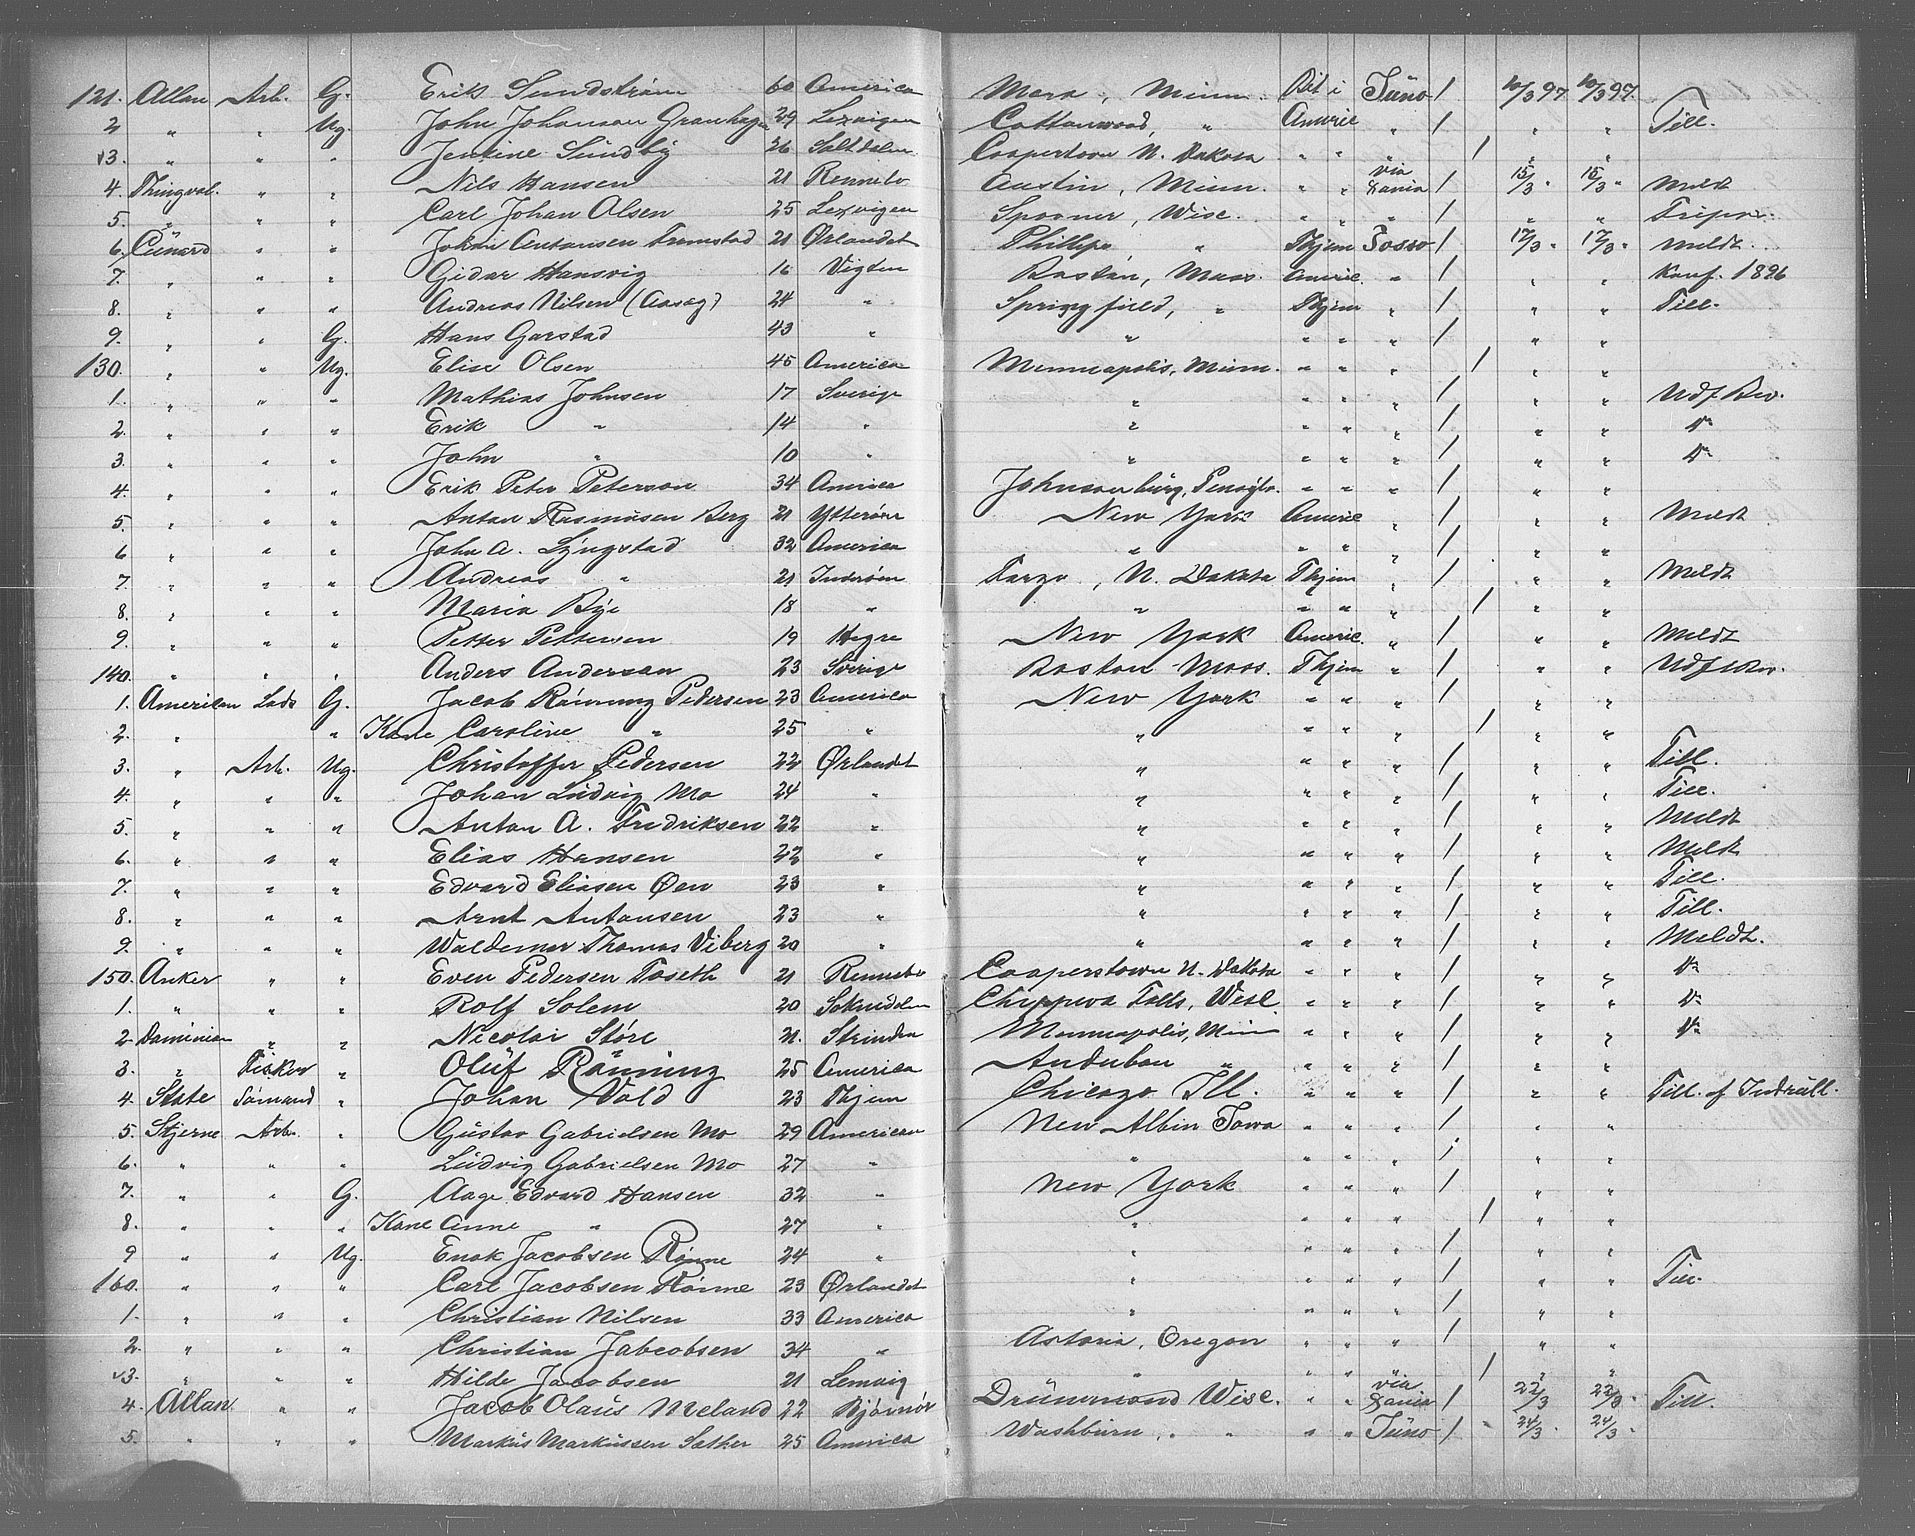 121. Allan Arb. G. Erik Sundstrøm 60 America Mora, Minn. Bil i Juno / 10/3 97 10/3 97.
2 " " Ug. John Johanson Granhagen 29 Lexvigen Cottonwood, " Americ " / " " Till.
13. " " " Jensine Sundby 26 Saltdalen Cooperstown N. Dakota " " " / " "
4. Thingval. " " Nils Hansen 21 Rennebo Austin, Minn. " " via Dania / 15/3 " 15/3 " Meldt
5. " " " Carl Johan Olsen 25 Lexvigen Spooner, Wisc. " " " / " " Fripas.
6. Cunard " " Johan Antonsen Tromstad 21 Ørlandet Phillips " Thjem Tosso / 17/3 " 17/3 " Meldt.
7. " " " Gidar Hansvig 16 Vigten Boston, Mass. Americ. " / " " Konf. 1896
8. " " " Andreas Nilsen (Aasag) 24 " Springfield, " Thjem " / " " Till.
9. " " G. Hans Garstad 43 " " " " " / " "
130. " " Ug. Elise Olsen 45 America Minneapolis, Minn. " " " / " "
1. " " " Mathias Johnsen 17 Sverige " " " " / " " Udf. Bev.
2. " " " Erik " 14 " " " " " / " " Do
3. " " " John " 10 " " " " " / " " Do
4. " " " Erik Peter Peterson 34 America Johnsonburg, Pensylv. " " " / " "
5. " " " Anton Rasmusen Berg 21 Ytterøen New York Americ " / " " Meldt
6 " " " John A. Lyngstad 32 America " " " " / " "
7. " " " Andreas " 21 Inderøen Fargo, N. Dakota Thjem " / " " Meldt
8. " " " Maria Bye 18 " " " " " / " "
9. " " " Petter Pettersen 19 Hegre New York Americ. " / " " Meldt
140. " " " Anders Anderson 23 Sverige Boston Mass. Thjem " / " " Udf. Bev.
1. American Lods G. Jacob Rønning Pedersen 23 America New York " " " / " "
2. " " Kone Caroline " 25 " " " " " / " "
3. " Arb. Ug. Christoffer Pedersen 22 Ørlandet " " " " / " " Till.
4. " " " Johan Ludvig Mo 24 " " " " " / " " Till.
5. " " " Anton A. Fredriksen 22 " " " " " / " " Meldt
6. " " " Elias Hansen 22 " " " " " / " " Meldt
7. " " " Edvard Eliasen Øen 23 " " " " " / " " Till.
8. " " " Arnt Antonsen 23 " " " " " / " " Till.
9. " " " Waldemar Thomas Viberg 20 " " " " " / " " Meldt.
150. Anker " " Even Pedersen Toseth 21 Rennebo Cooperstown N. Dakota " " " / " " Do
1. " " " Rolf Solem 20 Soknedalen Chippewa Falls, Wisc. " " " / " " Do
2 Dominion " " Nicolai Støre 21. Strinden Minneapolis, Minn " " " / " " Do
3. " Fisker " Oluf Rønning 25 America Audubon " " " " / " "
4. State Sømand " Johan Vold 23 Thjem Chicago Ill. " " " / " " Till. af Indrull.
5. Stjerne Arb. " Gustav Gabrielsen Mo 29 American New Albin Iowa " " " / " "
6. " " " Ludvig Gabrielsen Mo 27 " " " " " / " "
7. " " G. Aage Edvard Hansen 32 " New York " " " / " "
8. " " " Kone Anne " 27 " " " " " / " "
9 " " Ug. Enok Jacobsen Rønne 24 " " " " " / " "
160. " " " Carl Jacobsen Rønne 23 Ørlandet " " " " / " " Till.
1. " " " Christian Nilsen 33 America " " " " / " "
2. " " " Christian Jabcobsen 34 " Astoria, Oregon " " " / " "
13. " " " Hilde Jacobsen 21 Lemvig " " " " / " "
4. Allan " " Jacob Olaus Meland 22 Bjørnør Drummond Wisc. " " via Dania / 22/3 22/3 " Till.
5. " " " Markus Markussen Sæther 25 America Washburn, " " " Juno / 24/3 " 24/3 "